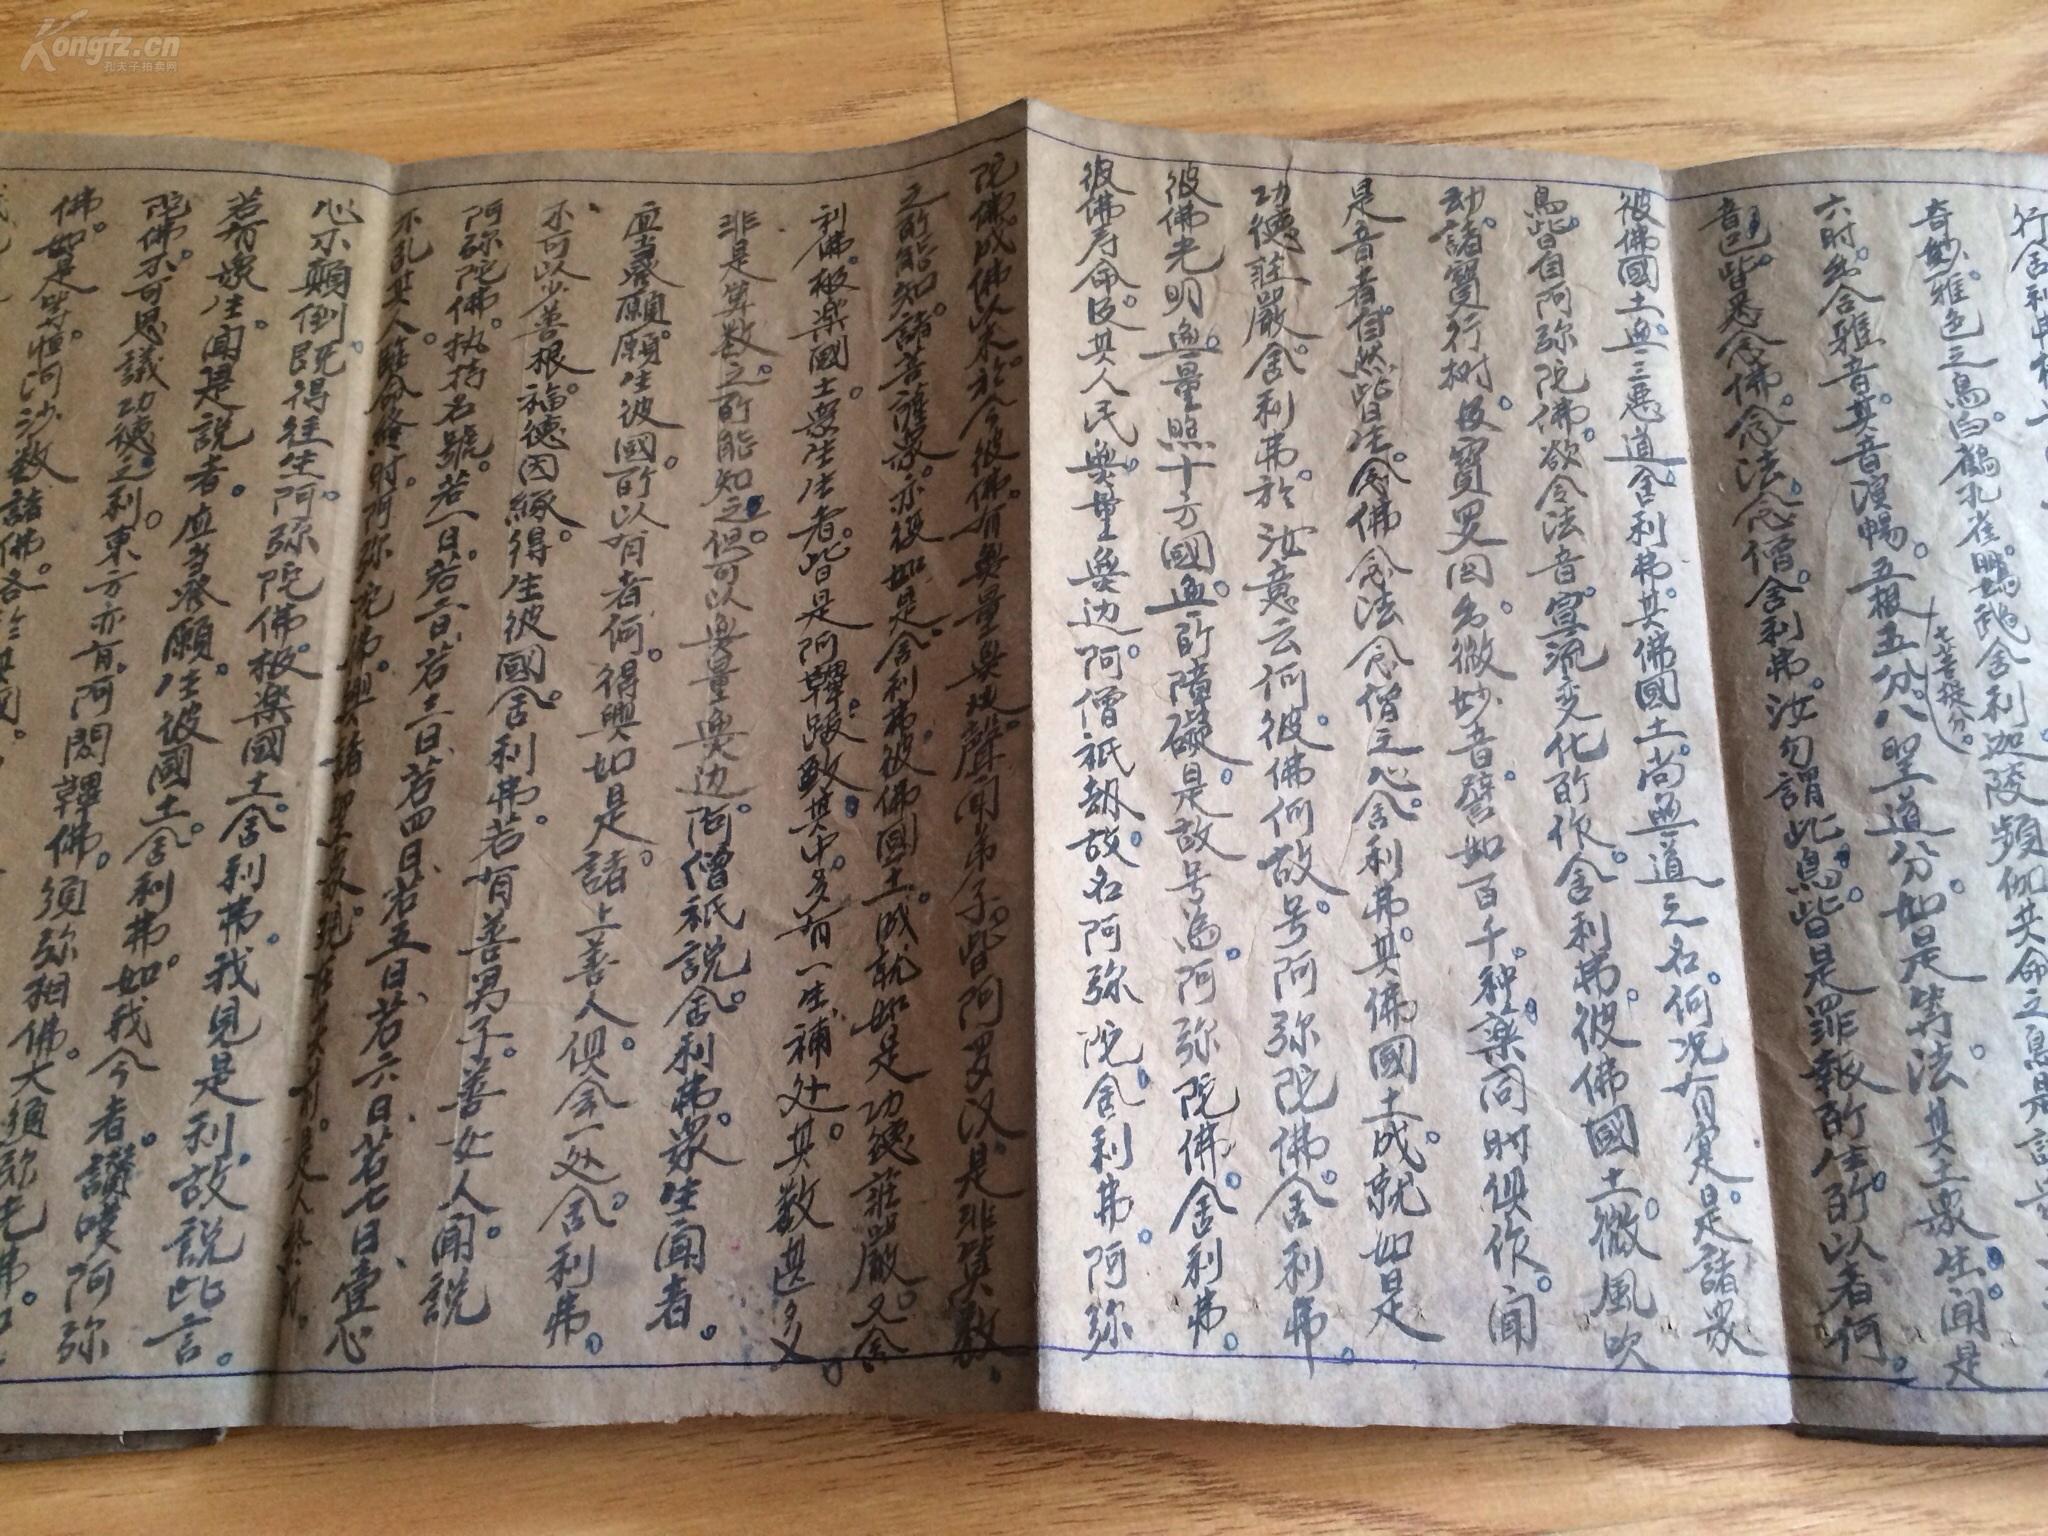 行舍利弗
奇妙雅色之鳥白鶴孔雀鸚鵡舍利迦陵頻伽共命之鳥是諸
六时出合雅音其音演暢。五根五分八聖道分如是等法其土衆生聞是
七菩提分。
音已皆悉念佛。念法念僧。舍利弗汝勿謂此鳥皆是罪報所生所以者何。
彼佛國土無三惡道舍利弗其佛國土尚無道之名何况有实。是諸衆
鳥皆自阿弥陀佛欲令法音宣流变化所作舍利弗彼佛國土微風吹
动諸寶行树及寶罗因出微妙音譬如百千种楽同时俱作。闻
是音者自然皆生念佛念法念僧之心舍利弗其佛國土成就如是
功德莊嚴舍利弗於汝意云何彼佛何故号阿弥陀佛。舍利弗。
彼佛光明無量照十方國無所障礙是故号為阿弥陀佛舍利弗。
彼佛寿命及其人民無量無边阿僧祇劫故名阿弥陀舍利弗阿弥
陀佛成佛以来於今彼佛有無量無边聲聞弟子皆阿罗汉是非算数
之所能知諸菩薩衆亦復如是舍利弗彼佛國土成就如是功德莊嚴又舍
利佛極楽國土衆生生者皆是阿鞞跋致其中多有一生補处其数甚多
非是算数之所能知之但可以無量無边阿僧祇說舍利弗衆生聞者。
应当發願願生彼國所以有者何。得與如是諸上善人俱会一处舍利弗。
不可以少善根福德因缘得生彼國舍利弗若有善男子善女人聞說
阿弥陀佛执持名號。若一日若二日若三日若四日若五日若六日若七日壹心
不乱其人臨命終时阿弥陀佛與諸聖衆現在其前是人終时。
心不顛倒既得往生阿弥陀佛極楽國土舍利弗我見是利故說此言。
若有衆生聞是說者。应当發願生彼國土舍利弗如我今者讃嘆阿弥
陀佛不可思議功德之利。東方亦有阿閦鞞佛。須弥相佛。大須弥光佛。
佛如是等恒河沙数諸佛各於其國。